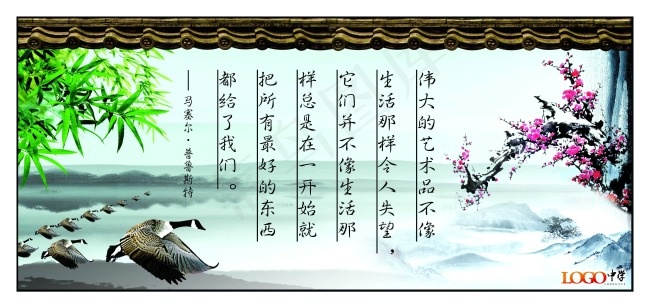 伟大的艺术品不像
生活那样令人失望，
它们并不像生活那
样总是在一开始就
把所有最好的东西
都给了我们。
——马塞尔·普鲁斯特
LOGO中学